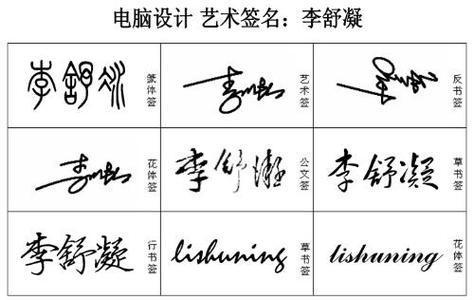 电脑设计 艺术签名：李舒凝
李舒凝 篆体签
艺术签
反书签
花体签
李舒凝 公文签
李舒凝 草书签
李舒凝 行书签
lishuning 草书签
lishuning 花体签